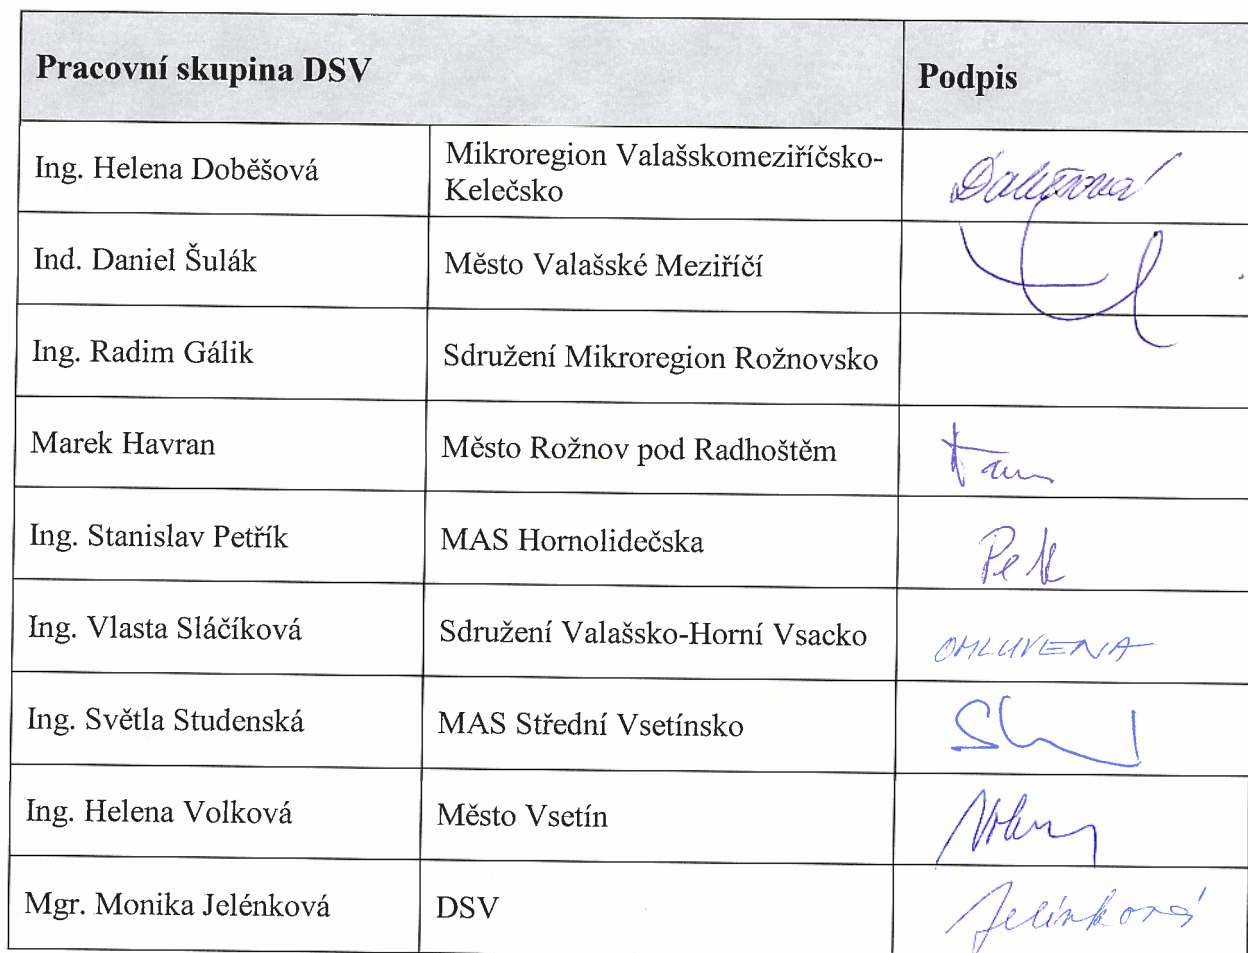 Pracovní skupina DSV Podpis
Ing. Helena Doběšová Mikroregion Valašskomeziříčsko-
Kelečsko Doběšová
Ind. Daniel Šulák Město Valašské Meziříčí
Ing. Radim Gálik Sdružení Mikroregion Rožnovsko
Marek Havran Město Rožnov pod Radhoštěm
Ing. Stanislav Petřík MAS Hornolidečska
Ing. Vlasta Sláčíková Sdružení Valašsko-Horní Vsacko OMLUVENA
Ing. Světla Studenská MAS Střední Vsetínsko
Ing. Helena Volková Město Vsetín
Mgr. Monika Jelénková DSV Jelínková